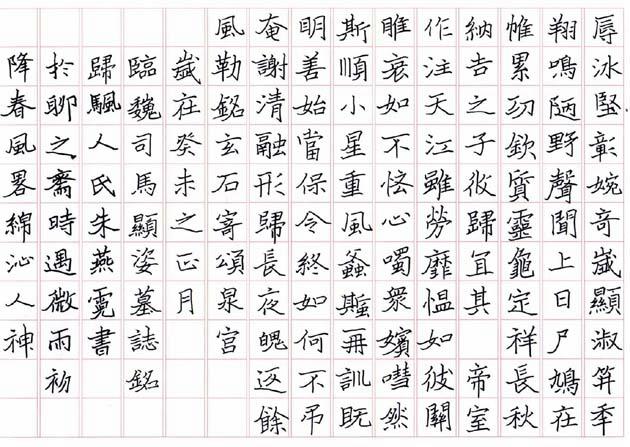 辱冰堅彰婉奇歲顯淑笄季
翔鳴陋野聲聞上日尸鳩在
帷累功欽質靈龜定祥長秋
納吉之子攸歸宜其 帝室
作注天江雖勞靡慍如彼關
雎哀如不恡心囑衆嬪嘒然
斯順小星重風螽蟴再訓既
明善始當保令終如何不弔
奄謝清融形歸長夜魄返餘
風勒銘玄石寄頌泉宮
歲在癸未之正月
臨魏司馬顯姿墓誌銘
歸颿人氏朱燕霓書
於聊之齋時遇微雨初
降春風畧綿沁人神